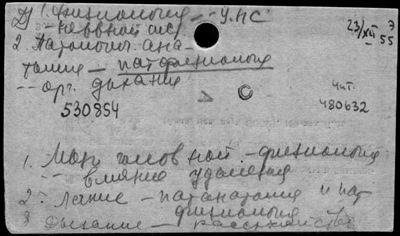 Д 1. Физиология – У.НС
23/XII – 55
– нервной сист
2. Патологич. ана-
томия – патфизиология
-- орг. дыхания
Чит.
530854
480632
1. Мозг головной – физиология
-- влияние удаления
2. Легкие – патанатомия и пат
физиология
3 Дыхание – расстройства